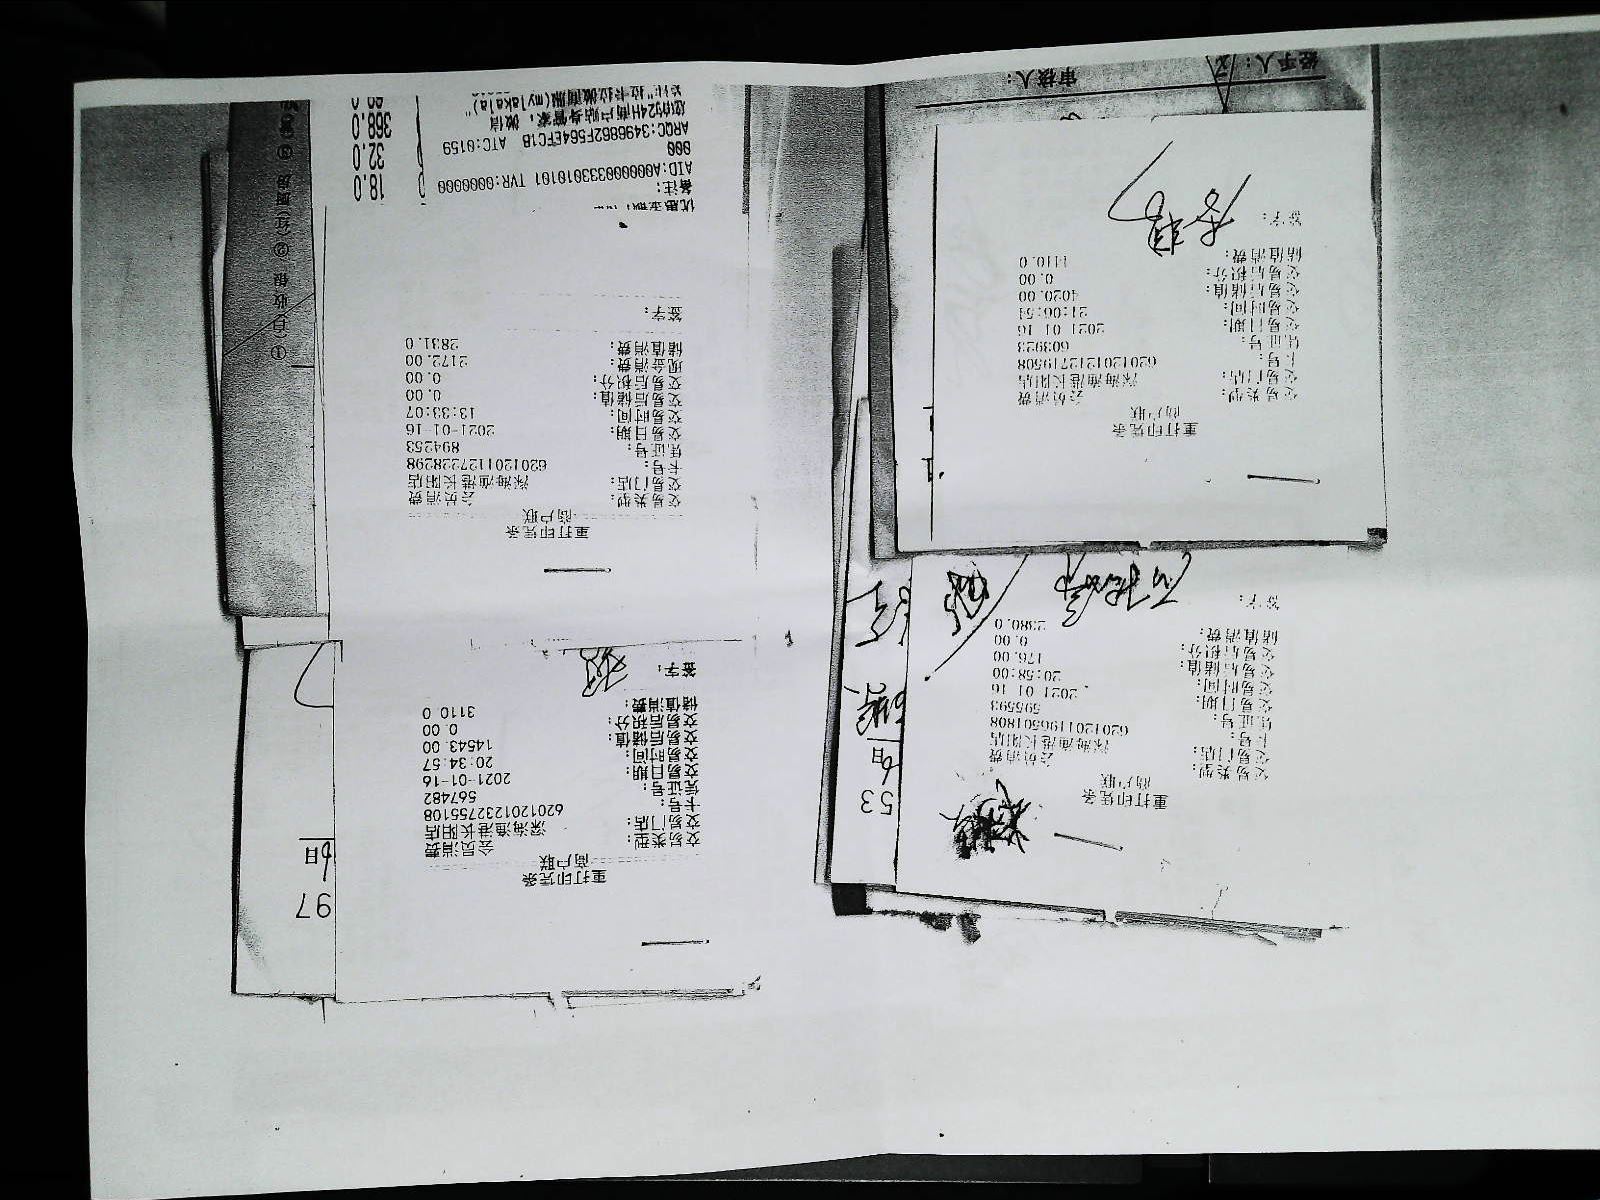 重打印凭条
商户联
交易类型: 会员消费
交易门店: 深海渔港长阳店
卡号: 6201201196501808
凭证号: 595593
交易日期: 2021 01 16
交易时间: 20:58:00
交易后储值: 176.00
交易后积分: 0.00
储值消费: 2380.0
签字:
53
6日
重打印凭条
商户联
交易类型: 会员消费
交易门店: 深海渔港长阳店
卡号: 6201201232755108
凭证号: 567482
交易日期: 2021-01-16
交易时间: 20:34:57
交易后储值: 14543.00
交易后积分: 0.00
储值消费: 3110.0
签字:
97
6日
重打印凭条
商户联
交易类型: 会员消费
交易门店: 深海渔港长阳店
卡号: 6201201212719508
凭证号: 603923
交易日期: 2021 01 16
交易时间: 21:06:54
交易后储值: 4020.00
交易后积分: 0.00
储值消费: 1110.0
签字:
经手人: 审核人:
重打印凭条
商户联
交易类型: 会员消费
交易门店: 深海渔港长阳店
卡号: 6201201127228298
凭证号: 894253
交易日期: 2021-01-16
交易时间: 13:33:07
交易后储值: 0.00
交易后积分: 0.00
现金消费: 2172.00
储值消费: 2831.0
签字:
优惠金额:
备注:
AID:A000000333010101 TVR:0000000
000
ARQC:3496862F564EFC1B ATC:0159
您的24H商户贴身管家,微信
关注"拉卡拉微商服(mylakala)"
18.0
32.0
368.0
①(白)收银 ②(红)厨房 ③